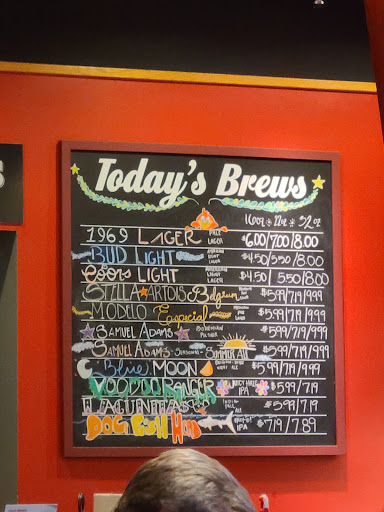 Today's Brews
16oz 22oz 32oz
1969 LAGER PALE LAGER $6.00/7.00/8.00
BUD LIGHT LIGHT LAGER $4.50/5.50/8.00
Coors LIGHT LIGHT LAGER $4.50/5.50/8.00
STELLA ARTOIS Belgium $5.99/7.19/9.99
MODELO Especial $5.99/7.19/9.99
SAMUEL ADAMS BOHEMIAN PILSNER $5.99/7.19/9.99
SAMUEL ADAMS SEASONAL - SUMMER ALE $5.99/7.19/9.99
Blue MOON ALE $5.99/7.19/9.99
VOODOO RANGER JUICY HAZE IPA $5.99/7.19
LAGUNITAS INDIA PALE ALE $5.99/7.19
DOG FISH HEAD IPA $7.19/7.89